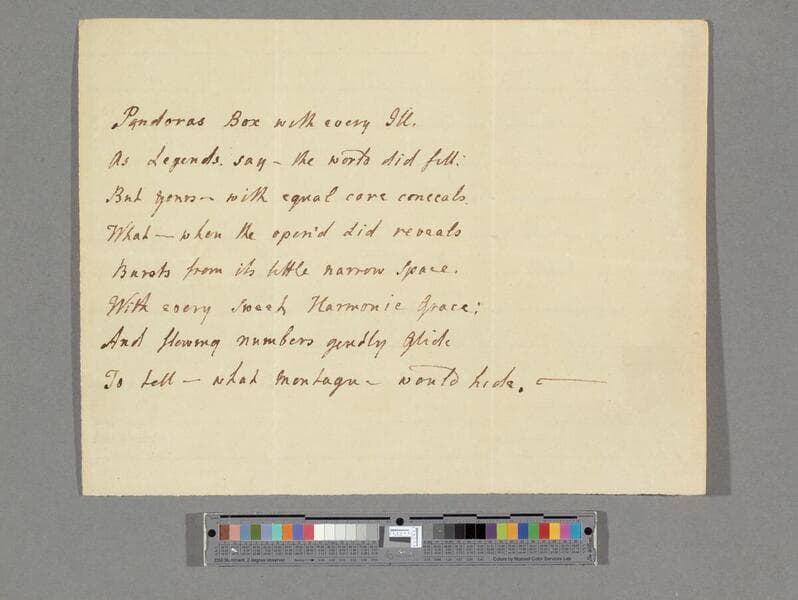 Pandoras Box with every Ill.
As Legends say – the world did fill:
But yours – with equal care conceals.
What – when the open'd lid reveals
Bursts from its little narrow Space.
With every sweet, Harmonic Grace;
And flowing numbers gently Glide
To tell – what Montagu – would hide. —